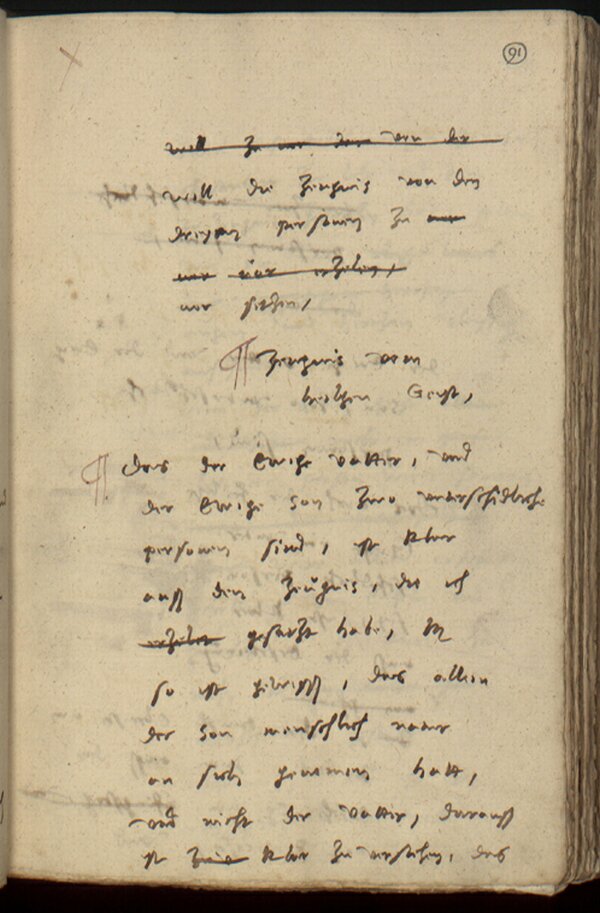 91
woll zu vor dem von der
woll die Zeugnis von den
dreyen personen zu
vor setzen,
¶ Zeugnis vom
heilgen Geist,
¶ Das der Ewige vatter, und
der Ewige Son zwo unterschidliche
personen sind, ist klar
auss dem Zeugnis, die ich
erzelet gesatzt habe,
so ist gewiss, das allein
der Son menschlich natur
an sich genomen hatt,
und nicht der vatter, darauss
ist klar zu verstehen, das